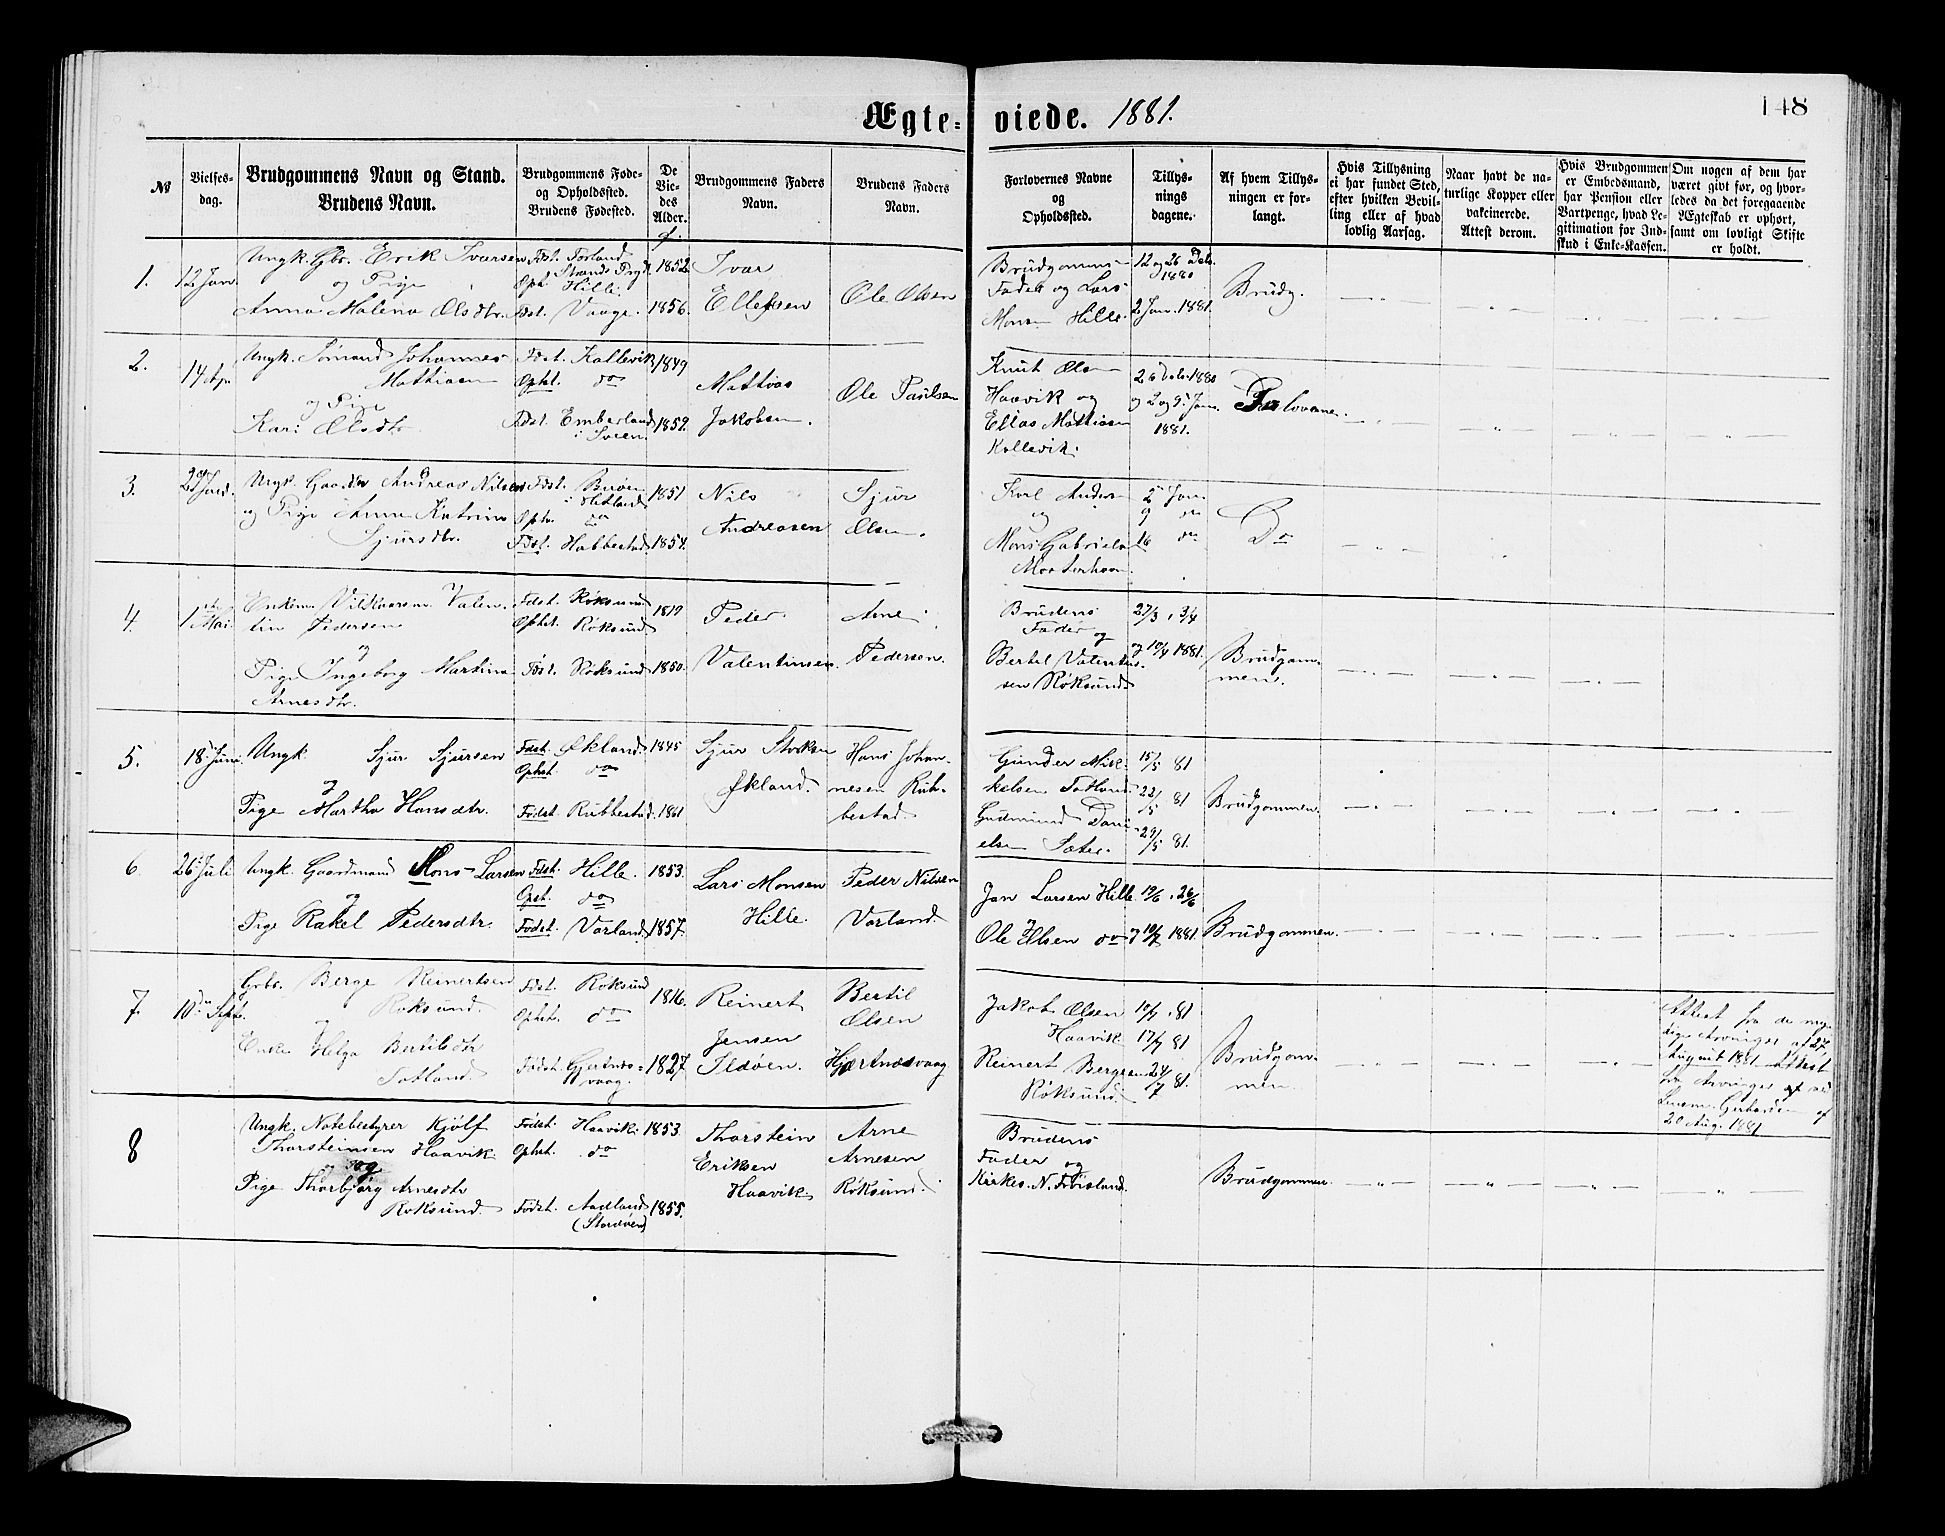 Ægte-viede. 1881.
148
№
Vielses-
dag.
Brudgommens Navn og Stand.
Brudens Navn.
Brudgommens Føde-
og Opholdssted.
Brudens Fødested.
De
Vie-
des
Alder.
Brudgommens Faders
Navn.
Brudens Faders
Navn.
Forlovernes Navne
og
Opholdssted.
Tillys-
nings
dagene.
Af hvem Tillys-
ningen er for-
langt.
Hvis Tillysning
ei har fundet Sted,
efter hvilken Bevil-
ling eller af hvad
lovlig Aarsag.
Naar havt de na-
turlige Kopper eller
vakcinerede.
Attest derom.
Hvis Brudgommen
er Embedsmand,
har Pension eller
Vartpenge, hvad Le-
gitimation for Ind-
skud i Enke-Kassen.
Om nogen af dem har
været givt før, og hvor-
ledes da det foregaaende
Ægteskab er ophørt,
samt om lovligt Skifte
er holdt.
1.
12 Jan.
Ungk. Gbr. Erik Iversen
og Pige
Anna Malena Olsdtr.
Fdst. Førland
Strands Prgj.
Opst. Hille.
Fdst. Vaage.
1852.
1856.
Ivar
Ellefsen
Ole Olsen
Brudgommens
Fader og Lars
Monsen Hille.
12 og 26 Dcb.
1880
2 Jan. 1881.
Brudg.
2.
14 Ap.
Ungk. Sømand Johannes
Mathiasen
og Pige
Kari Olsdtr.
Fdst. Kallevik
Ophst. do
Fdst. Emberland
i Sveen
1849
1852.
Mathias
Jakobsen.
Ole Paulsen
Knut Olsen
Haavik og
Elias Mathiasen
Kallevik.
26 Dcb. 1880
og 2 og 9. Jan.
1881.
Forlovерne.
3.
Ungk. Andreas Nilsen
og Pige Anna Katrina
Sjursdtr.
Fdst.
i Hetland
Opst. do
Fdst. Hubbestad
1851
1854.
Nils
Andreasen
Sjur
Olsen.
Karl Andersen
og
Mons Gabrielsen
Mosterhavn.
2 Jan.
9 do
16 do
Do
4.
1ste Mai.
Enkem. Valen-
tin Pedersen
og
Pige Ingeborg Martina
Arnesdtr.
Fdst. Røksund
Ophst. Røksund
Fdst. Røksund
1819
1850.
Peder
Valentinsen.
Arne
Pedersen.
Brudens
Fader og
Bertel Valentin-
sen Røksund
27/3, 3/4
og 10/4 1881.
Brudgom-
men.
5.
18 Juni
Ungk. Sjur Sjursen
og
Pige Martha Hansdtr.
Fdst. Økland.
Ophst. do
Fødst. Rubbestad.
1845
1861
Sjur Storksen
Økland.
Hans Johan-
nesen Rub-
bestad.
Gunder Mik-
kelsen Totland
Gudmund Dani-
elsen Sæter.
15/5 81
22/5 81
29/5 81.
Brudgommen.
6.
26 Juli
Ungk. Gaardmand Mons Larsen
og
Pige Rakel Pedersdtr.
Fdst. Hille.
Opst. do
Fødst. Vorland
1853.
1857.
Lars Monsen
Hille.
Peder Nilsen
Vorland.
Jan Larsen Hille
og
Ole Olsen do
19/6, 26/6
og 10/7 1881.
Brudgommen.
7.
10de Sept.
Grbr. Berge Reinertsen
Røksund.
og
Enke Helga Bertilsdtr
Totland.
Fdst. Røksund
Ophst. do
Fødst. Gjertnes-
vaag.
1816.
1827
Reinert
Jensen
Ildøen.
Bertil
Olsen
Hjærtnæsvaag
Jakob Olsen
Haavik
Reinert Bergesen
Røksund.
10/7 81
17/7 81
24/7 81.
Brudgom-
men.
Attest fra de myn-
dige Arvinger af 27
August 1881. Attest
fra Arvinger af
20 Aug. 1881
8
Ungk. Notebestyrer Kjølf
Thorsteinsen Haavik
og
Pige Thorbjørg Arnesdtr
Røksund.
Fødst. Haavik.
Ophst. do
Fødst. Aadland
(Stordøen)
1853.
1855.
Thorstein
Eriksen
Haavik.
Arne
Arnesen
Røksund.
Brudens
Fader og
Kirkes. N. Frøisland.
Brudgommen.